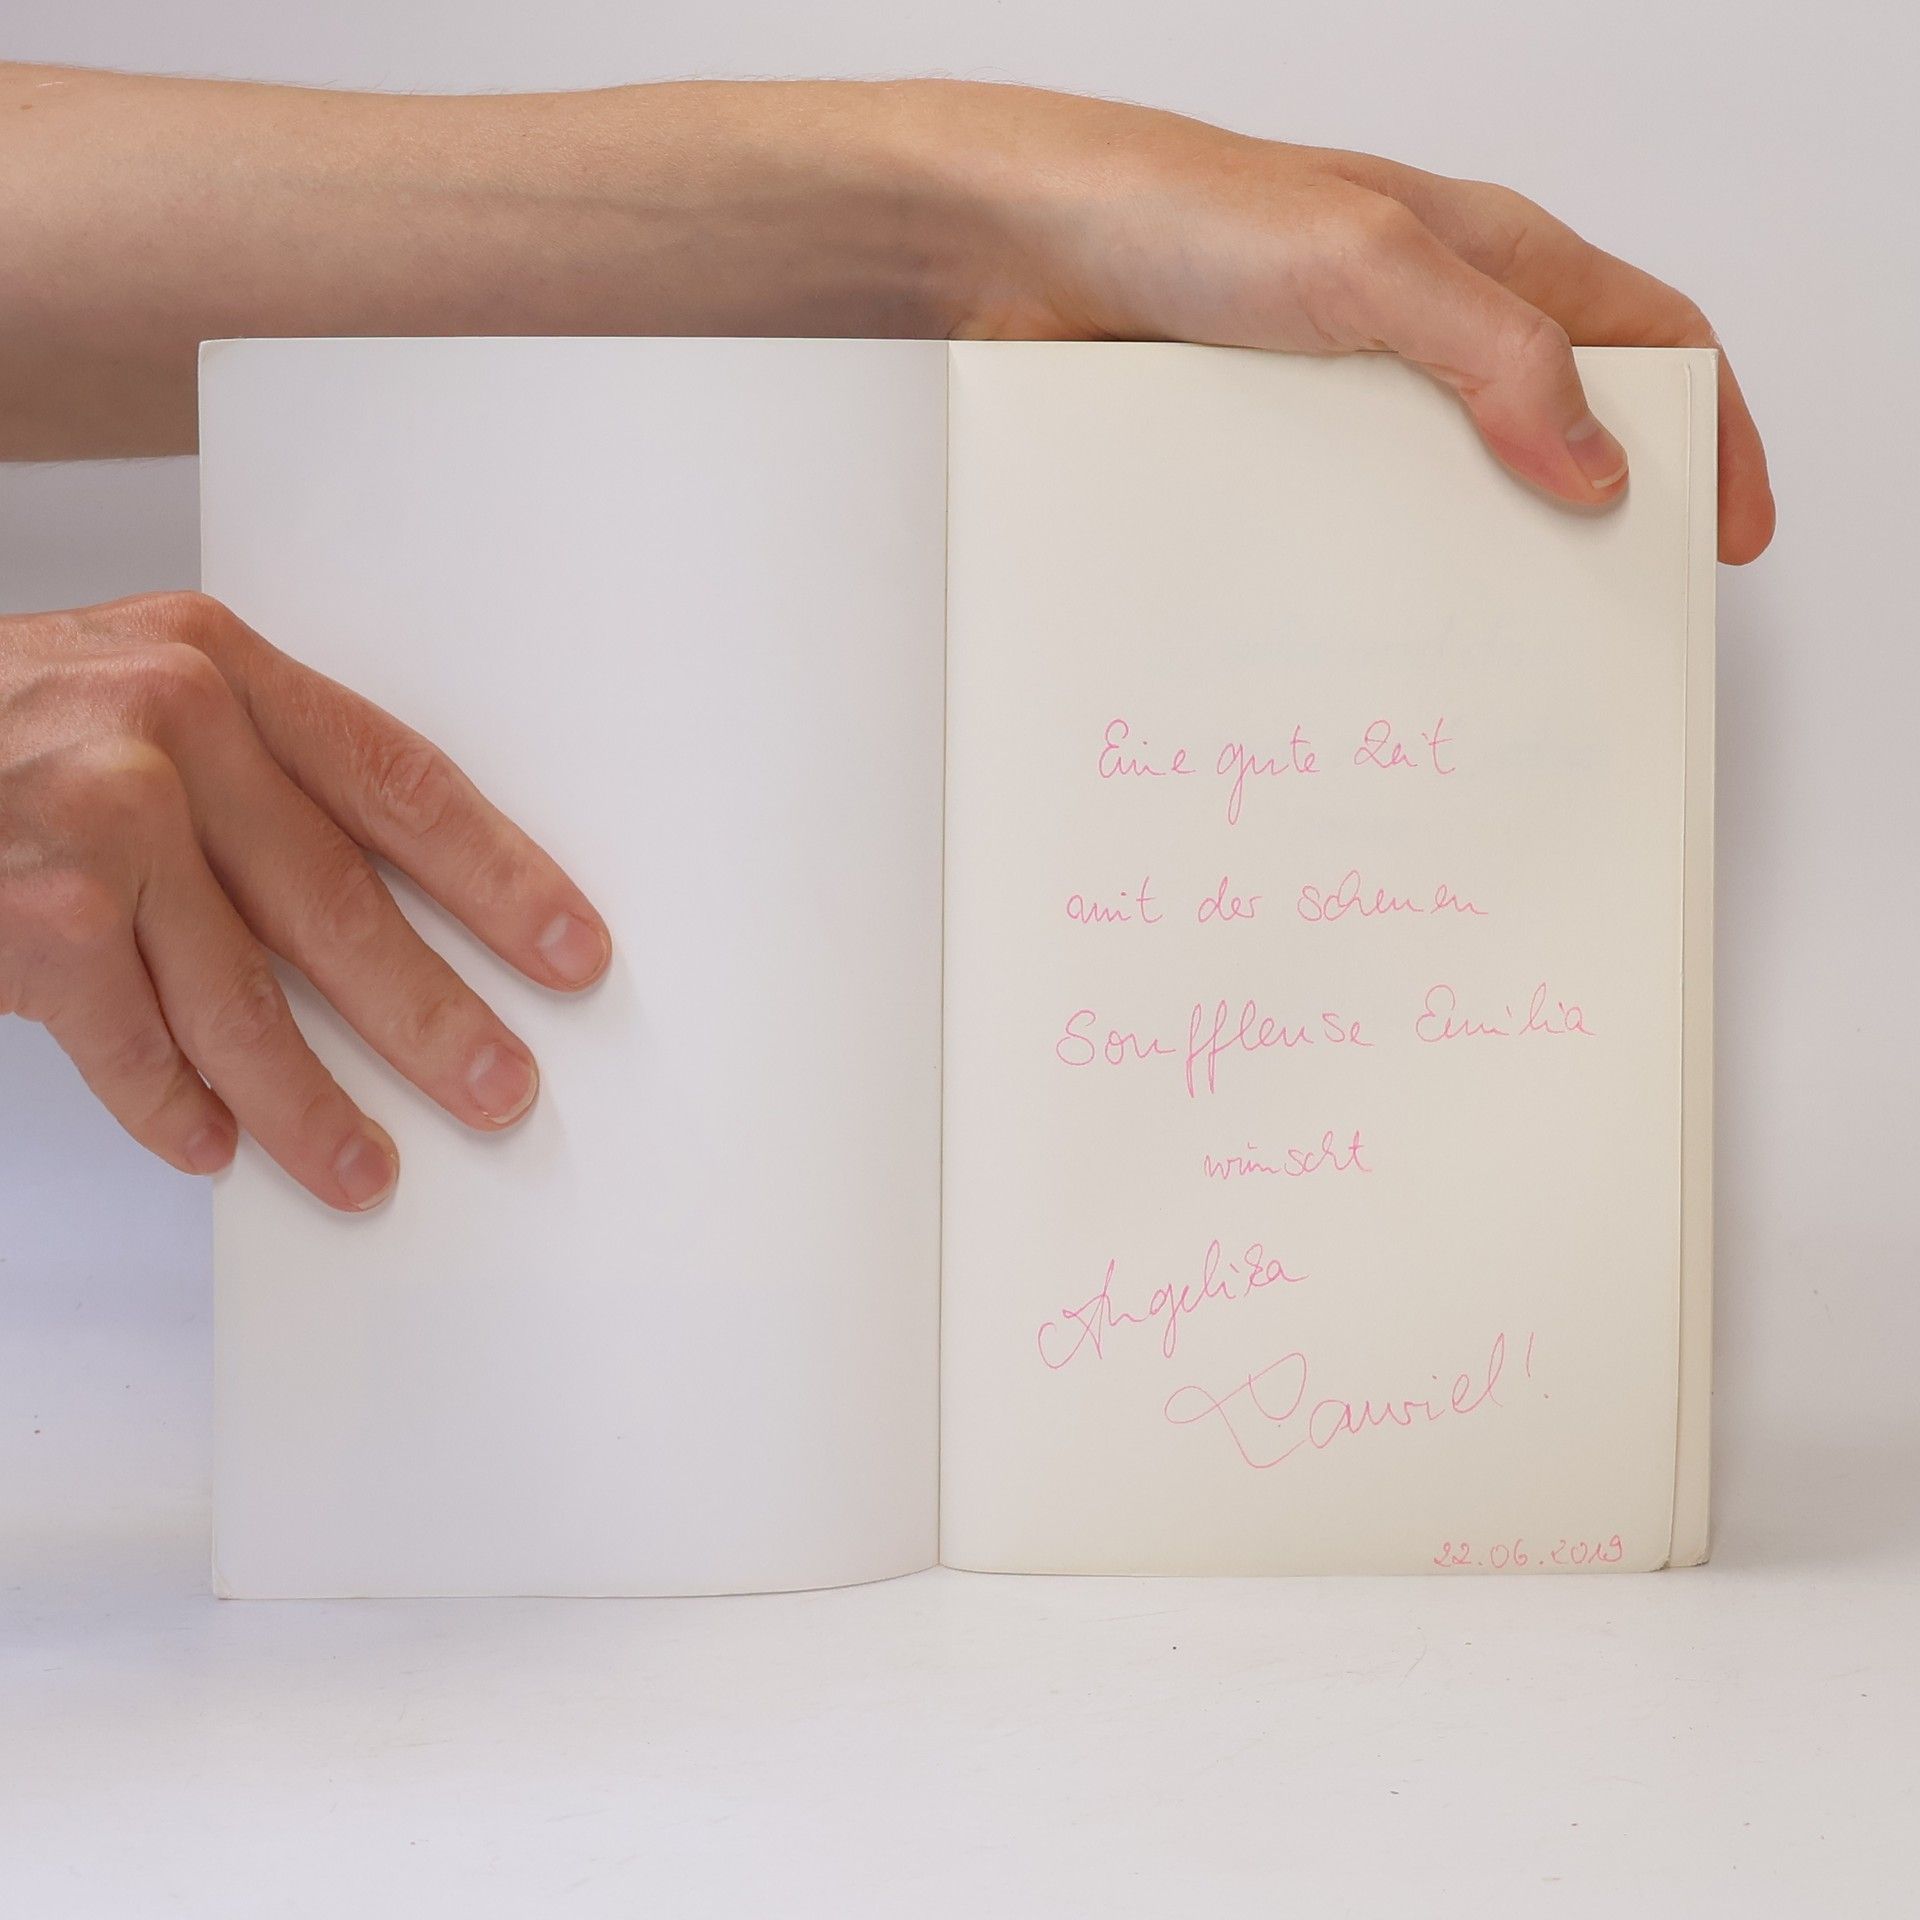 Eine gute Zeit
mit der scheuen
Souffleuse Emilia
wünscht
Angelika
Lauriel!
22.06.2019